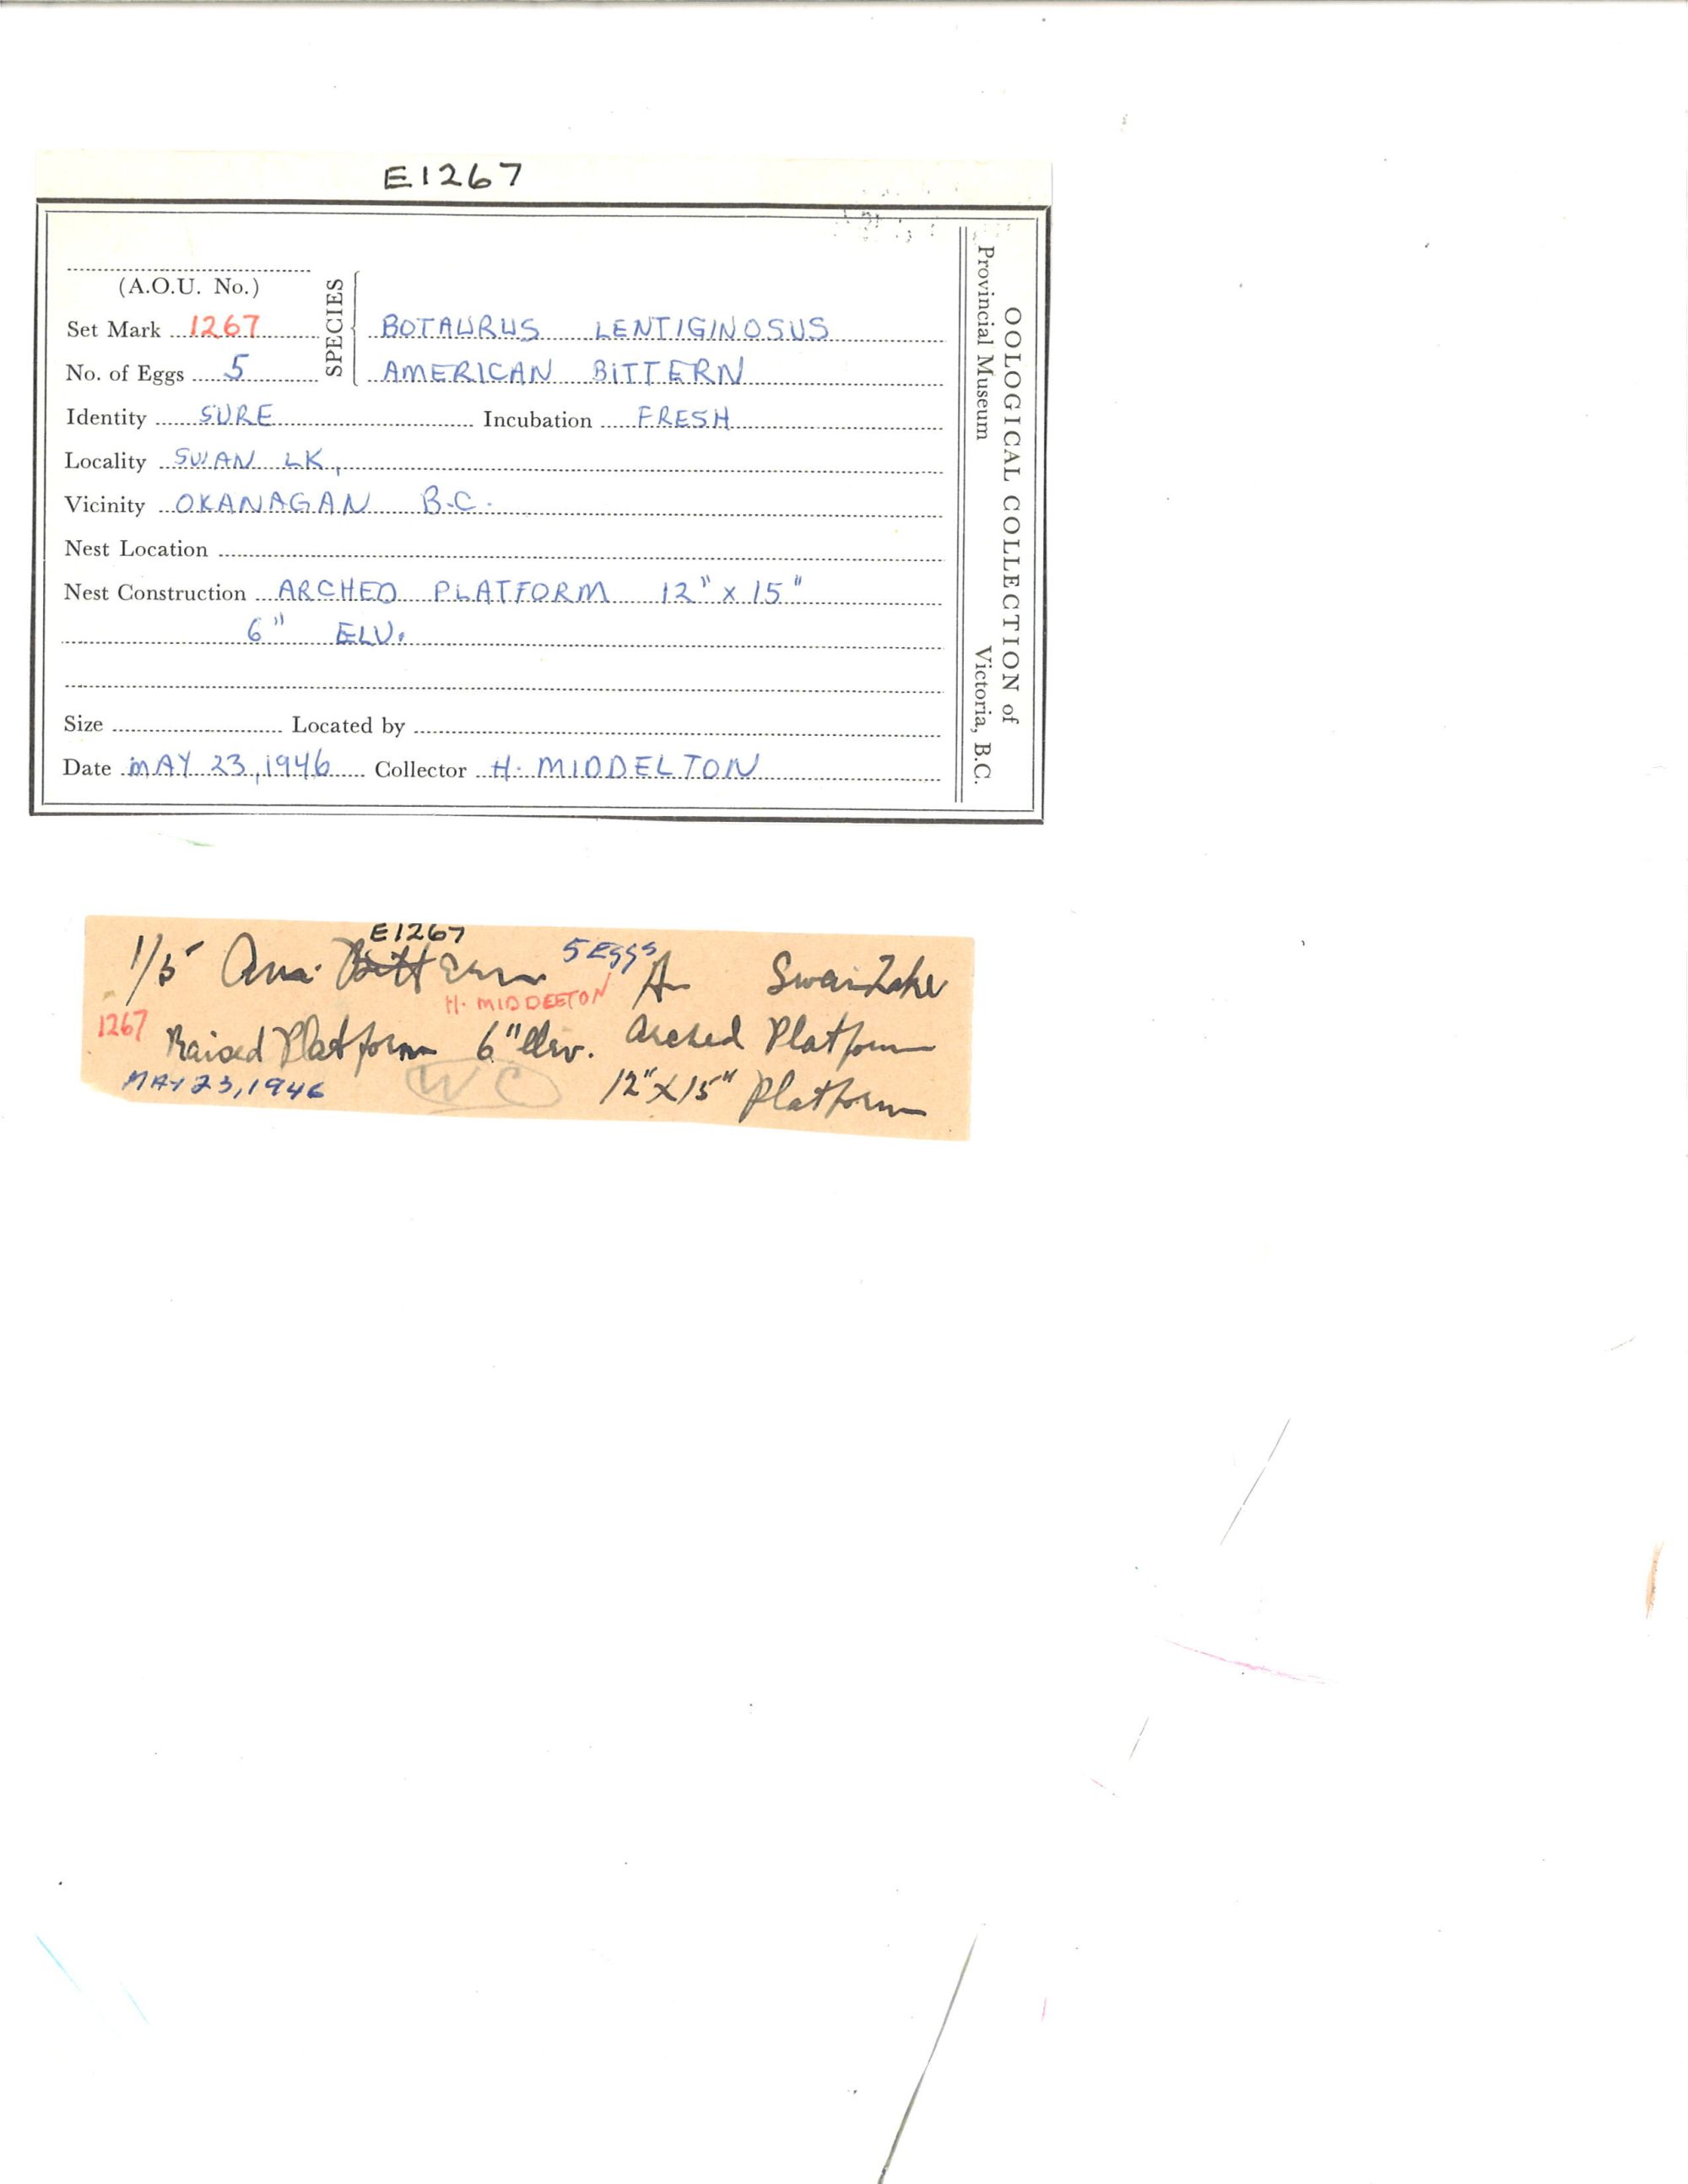 E1267
(A.O.U. No.)
Set Mark 1267
No. of Eggs 5
SPECIES
BOTAURUS LENTIGINOSUS
AMERICAN BITTERN
Identity SURE Incubation FRESH
Locality SWAN LK,
Vicinity OKANAGAN B.C.
Nest Location
Nest Construction ARCHED PLATFORM 12" x 15"
6" ELV.
Size Located by
Date MAY 23, 1946 Collector H. MIDDELTON
OOLOGICAL COLLECTION of
Provincial Museum Victoria, B.C.
E1267
1/5 Am. Bittern 5 EGGS Swan Lake
H. MIDDELTON
1267 Raised Platform 6" Elev. Arched Platform
MAY 23, 1946 WC 12" X 15" Platform